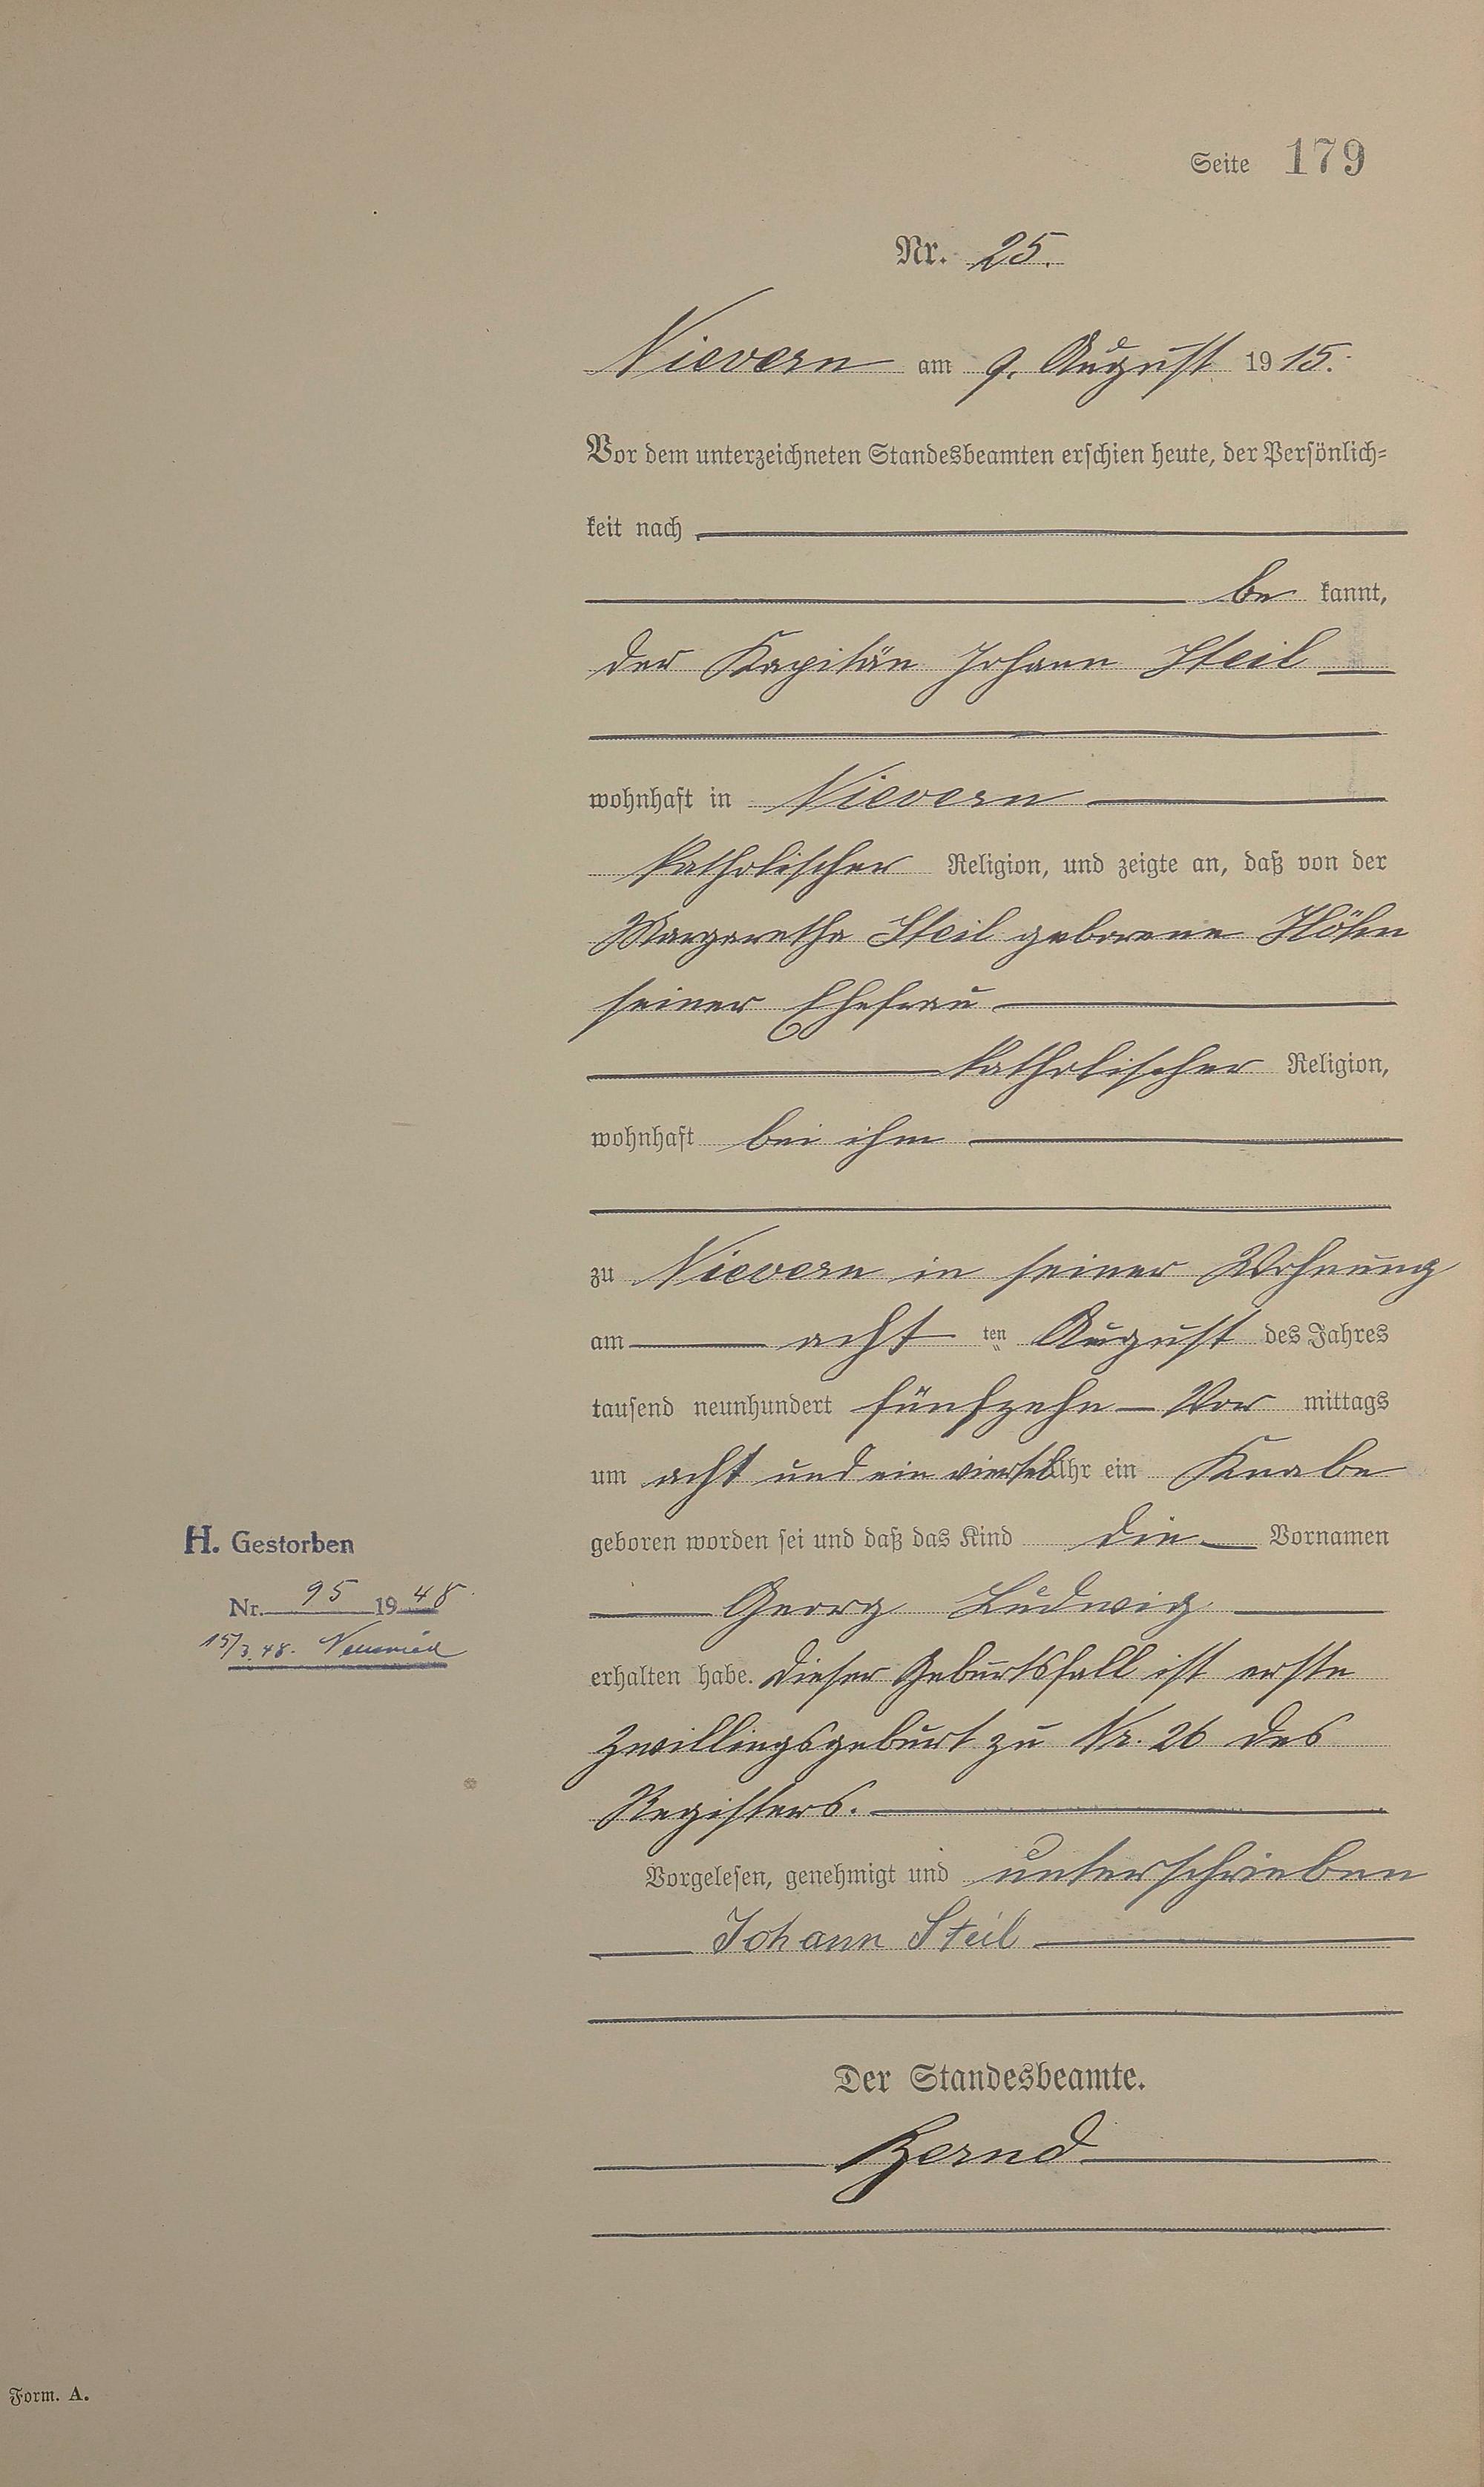 Seite 179
Nr. 25.
Nievern am 9. August 1915.
Vor dem unterzeichneten Standesbeamten erschien heute, der Persönlich-
keit nach
be kannt,
der Kapitän Johann Steil
wohnhaft in Nievern
katholischer Religion, und zeigte an, daß von der
Margaretha Steil geborene Höhn
seiner Ehefrau
katholischer Religion,
wohnhaft bei ihm
zu Nievern in seiner Wohnung
am acht ten August des Jahres
tausend neunhundert fünfzehn Vor mittags
um acht und ein viertel Uhr ein Knabe
geboren worden sei und daß das Kind die Vornamen
Georg Ludwig
erhalten habe. Dieser Geburtsfall ist erste
Zwillingsgeburt zu Nr. 26 des
Registers.
Vorgelesen, genehmigt und unterschrieben
Johann Steil
Der Standesbeamte.
Bernd
H. Gestorben
Nr. 95 1948
15/3.48. Neuwied
Form. A.